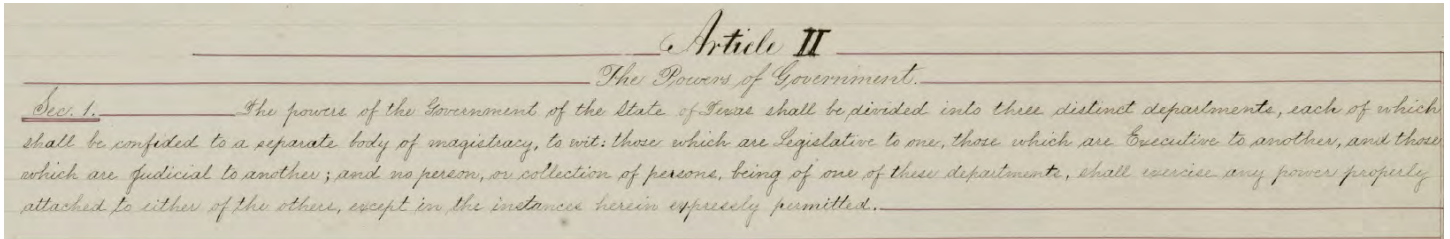 Article II
The Powers of Government.
Sec. 1. The powers of the Government of the State of Texas shall be divided into three distinct departments, each of which
shall be confided to a separate body of magistracy, to wit: those which are Legislative to one, those which are Executive to another, and those
which are Judicial to another; and no person, or collection of persons, being of one of these departments, shall exercise any power properly
attached to either of the others, except in the instances herein expressly permitted.